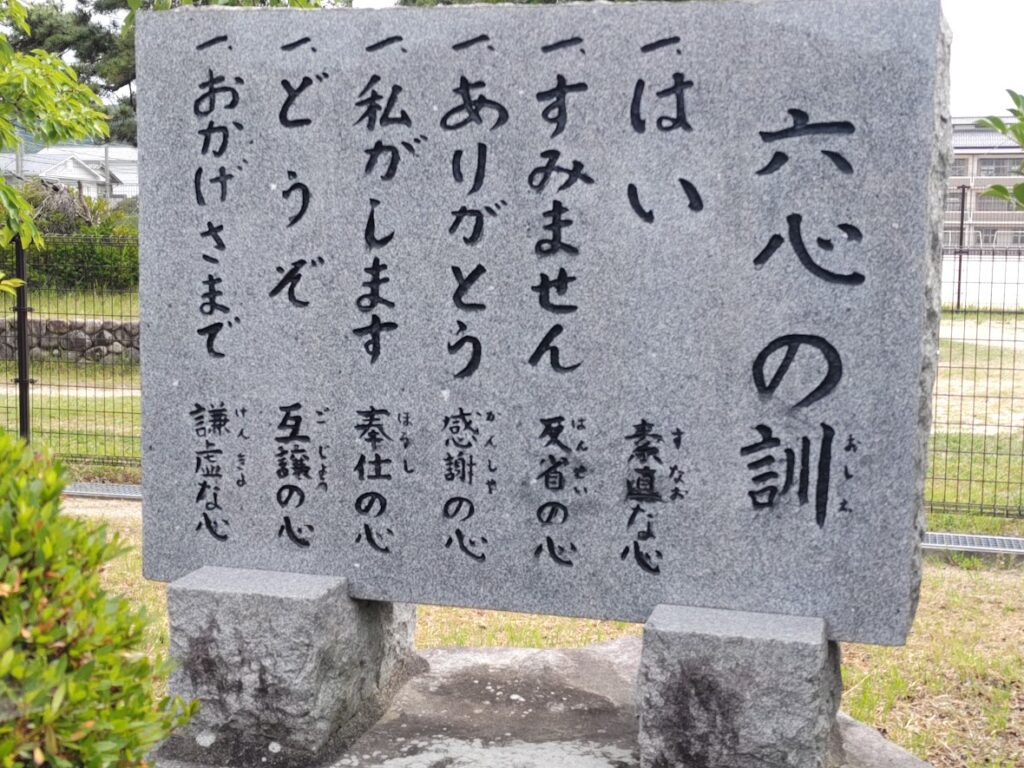 六心の訓
おしえ
一、はい 素直な心
すなお
一、すみません 反省の心
はんせい
一、ありがとう 感謝の心
かんしゃ
一、私がします 奉仕の心
ほうし
一、どうぞ 互譲の心
ごじょう
一、おかげさまで 謙虚な心
けんきょ